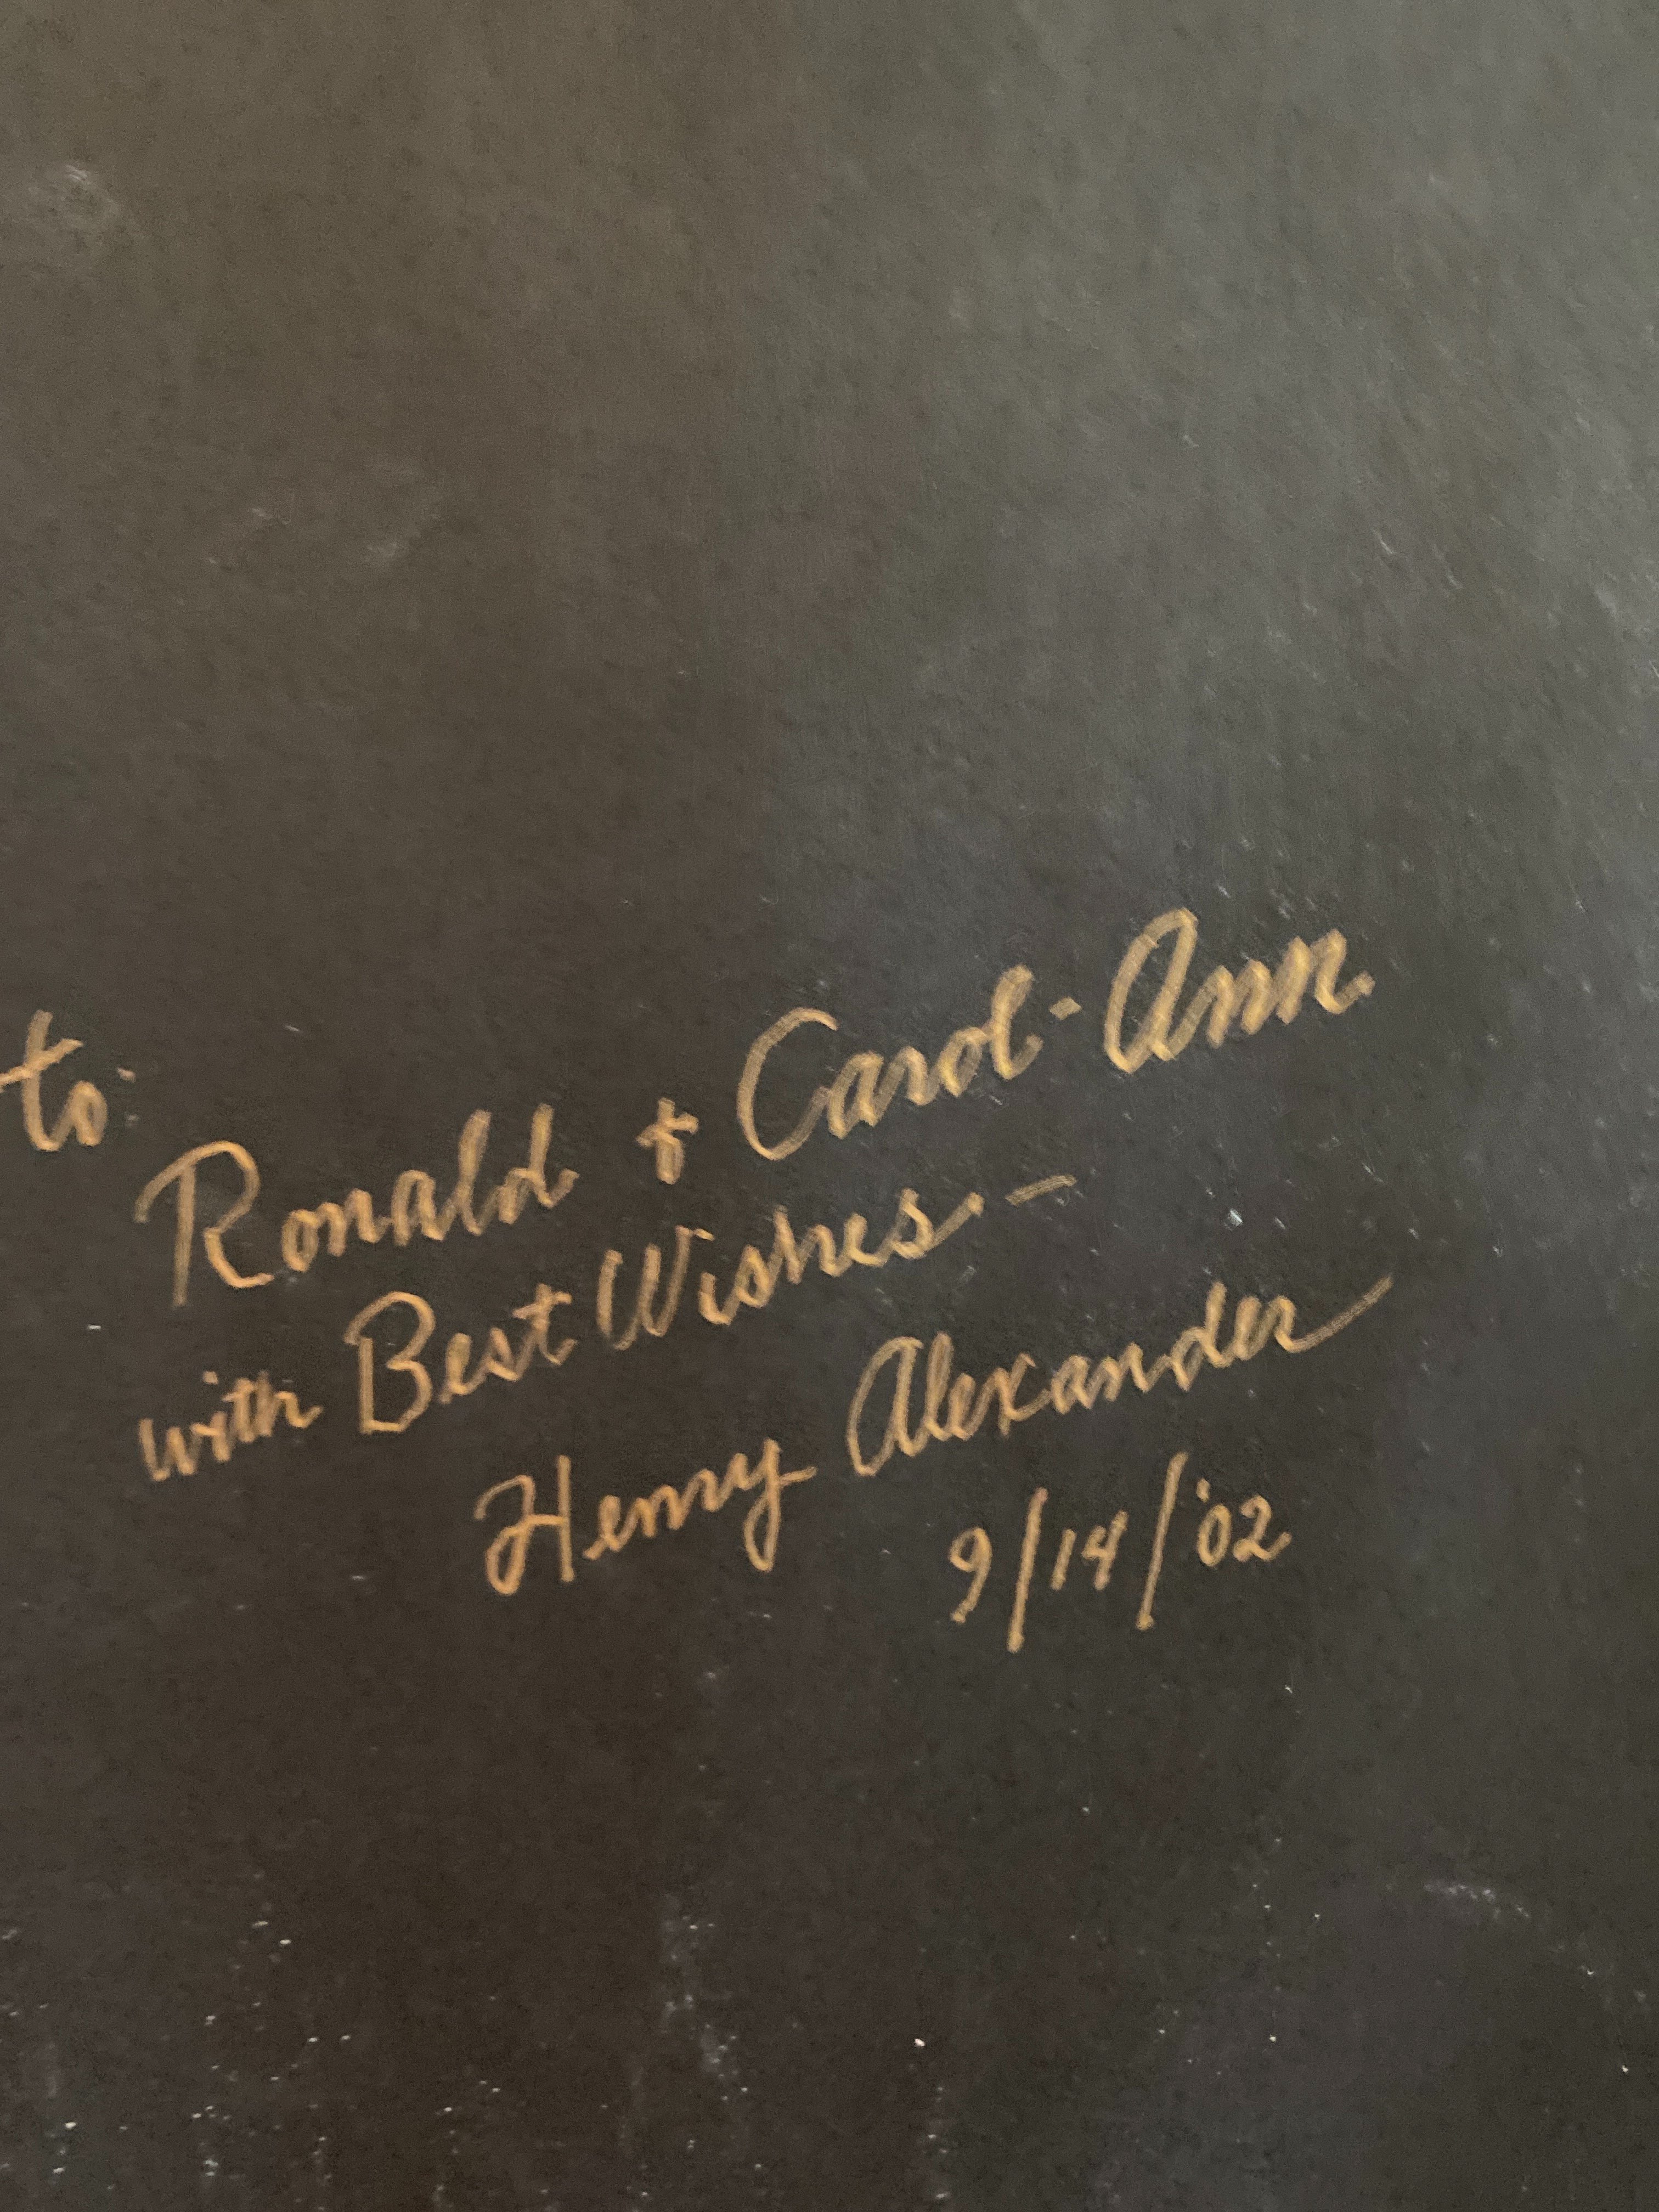 to:
Ronald & Carol-Ann
with Best Wishes. —
Henry Alexander
9/14/'02